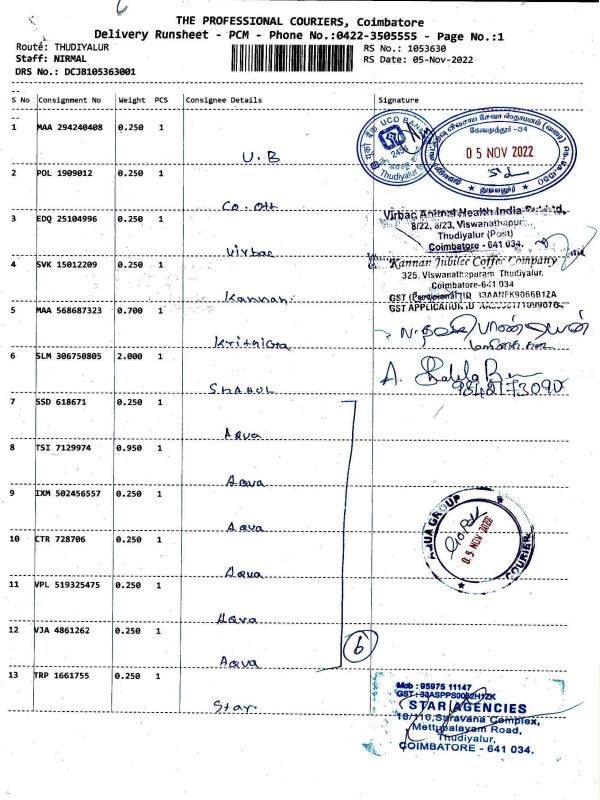 6
THE PROFESSIONAL COURIERS, Coimbatore
Delivery Runsheet - PCM - Phone No.:0422-3505555 - Page No.:1
Route: THUDIYALUR
RS No.: 1053630
Staff: NIRMAL
RS Date: 05-Nov-2022
DRS No.: DCJB105363001
S No Consignment No Weight PCS Consignee Details Signature
1 MAA 294240408 0.250 1 U.B
UCO BANK
2454
Thudiyalur
கோயமுத்தூர் -34
05 NOV 2022
துடியலூர்
2 POL 1909012 0.250 1 Co. Off
3 EDQ 25104996 0.250 1 Virbac
Virbac Animal Health India Pvt. Ltd.
8/22, 8/23, Viswanathapur
Thudiyalur (Post)
Coimbatore - 641 034.
4 SVK 15012209 0.250 1 Kannan.
Kannan Jubilee Coffee Company
325, Viswanathapuram Thudiyalur.
Coimbatore-641 034
5 MAA 568687323 0.700 1 Krithiga
6 SLM 306750805 2.000 1 SHAHUL
A.
7 SSD 618671 0.250 1 Aqua
8 TSI 7129974 0.950 1 Aqua
9 IXM 502456557 0.250 1 Aqua
AQUA GROUP
05 NOV 2022
COURIER
10 CTR 728706 0.250 1 Aqua
11 VPL 519325475 0.250 1 Aqua
12 VJA 4861262 0.250 1 Aqua
6
13 TRP 1661755 0.250 1 Star.
Mob : 95975 11147
STAR AGENCIES
18/116, Saravana Complex,
Mettupalayam Road,
Thudiyalur,
COIMBATORE - 641 034.